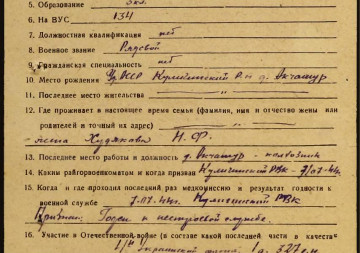 5. Образование 3кл.
6. На ВУС 134
7. Должностная квалификация нет
8. Военное звание Рядовой
9. Гражданская специальность нет
10. Место рождения Уд.АССР Кулигинский Р-н д.
11. Последнее место жительства "
12. Где проживает в настоящее время семья (фамилия, имя и отчество жены или
родителей и точный их адрес)
жена Худякова Н. Ф.
13. Последнее место работы и должность д. - колхозник
14. Каким райгорвоенкоматом и когда призван Кулигинский РВК - 7/07-44г.
15. Когда и где проходил последний раз медкомиссию и результат годности к
военной службе 7.07.44г. Кулигинский РВК
Признан: Годен к нестроевой службе.
16. Участие в Отечественной войне (в составе какой последней части в качестве
Украинский фронт,